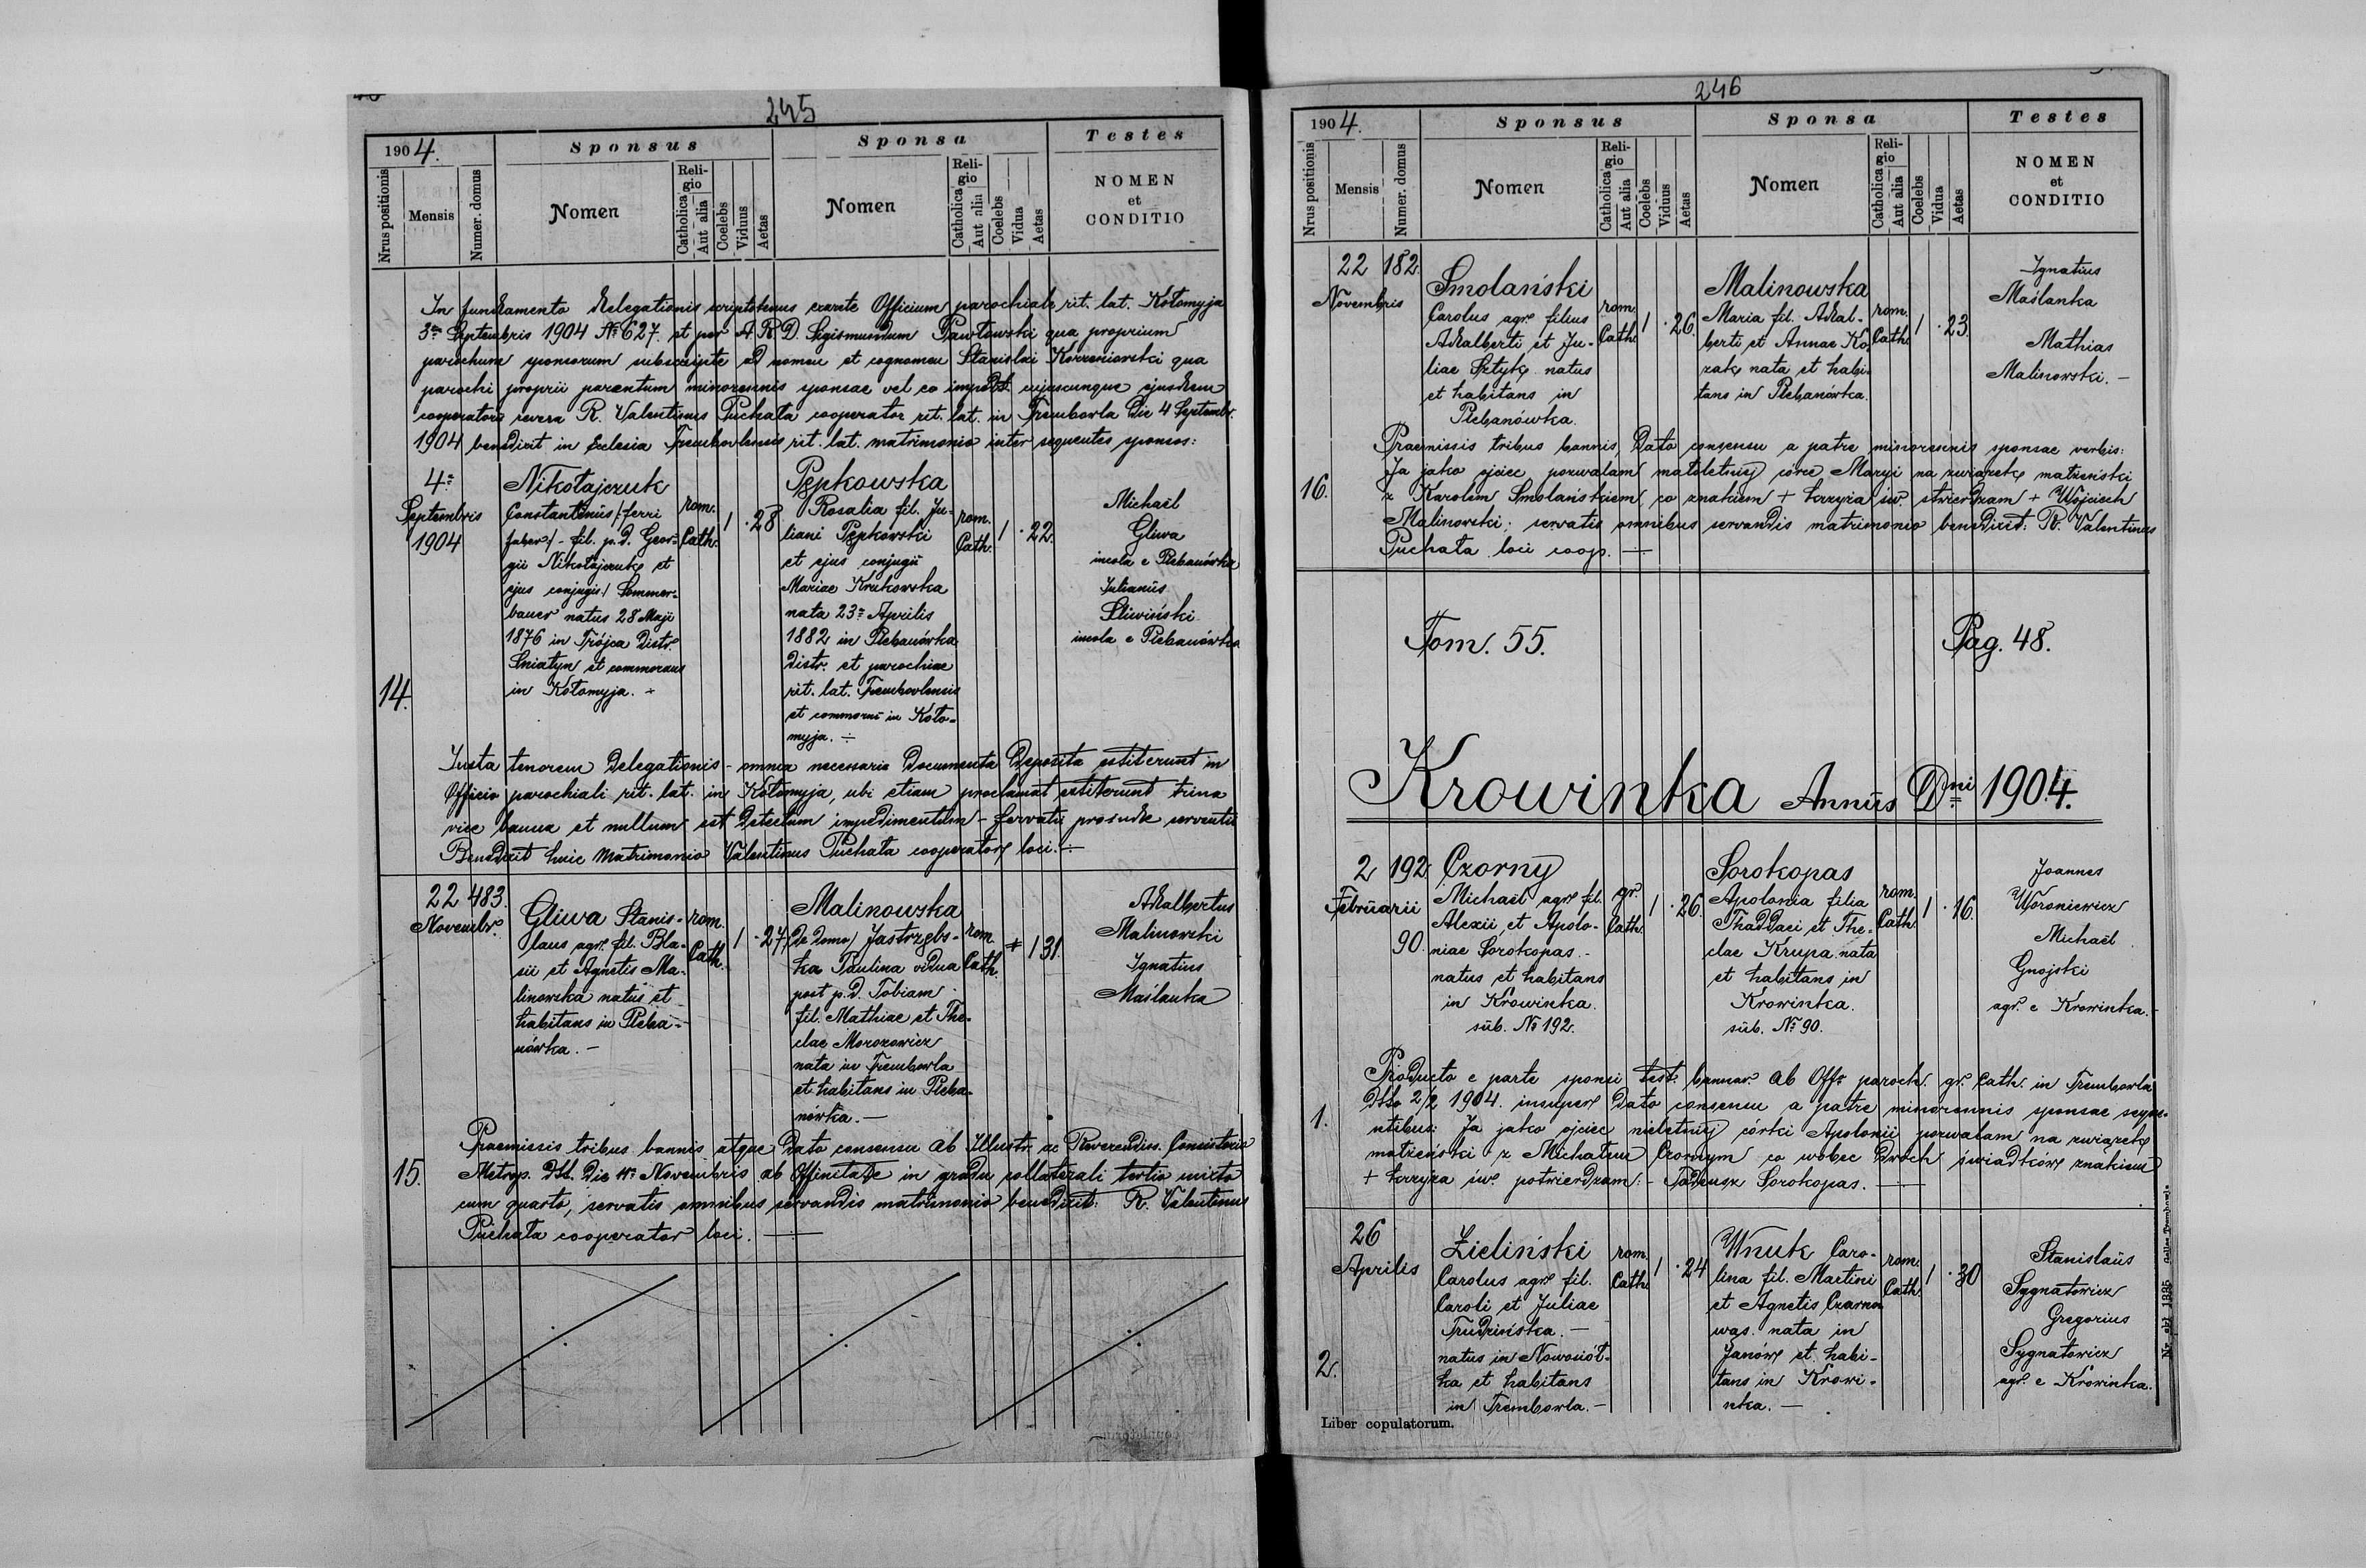 245
1904.
Sponsus
Sponsa
Testes
Nrus positionis
Mensis
Numer. domus
Nomen
Religio
Catholica
Aut alia
Coelebs
Viduus
Aetas
Nomen
Religio
Catholica
Aut alia
Coelebs
Vidua
Aetas
NOMEN
et
CONDITIO
In fundamento Delegationis scriptotenus exarate Officium parochiale rit. lat. Kołomyja
3ª Septembris 1904 № 627. et per A. R. D. Sigismundum Pawłowski qua proprium
parochum sponsorum subscripte ad nomen et cognomen Stanislai Korzeniowski qua
parochi proprii parentum minorennis sponsae vel eo imped. cujuscunque ejusdem
cooperatore revera R. Valentinus Puchała cooperator rit. lat. in Trembowla die 4 Septembr.
1904 benedixit in Ecclesia Trembovlensis rit. lat. matrimonio inter sequentes sponsos:
14.
4ª
Septembris
1904
Nikołajczuk
Constantinus /: ferri
faber / - fil. p. d. Geor-
gii Nikołajczuk et
ejus conjugis / Sommer-
bauer natus 28 Maji
1876 in Trójca Distr.
Sniatyn et commorans
in Kołomyja. -
rom.
Cath.
1 · 28
Pępkowska
Rosalia fil. Ju-
liani Pępkowski
et ejus conjugii
Mariae Krukowska
nata 23ª Aprilis
1882 in Plebanówka
Distr. et parochiae
rit. lat. Trembovlensis
et commorans in Koło-
myja. -
rom.
Cath.
1 · 22.
Michaël
Gliwa
incola e Plebanówka
Julianus
Sliwiński
incola e Plebanówka
Juxta tenorem Delegationis - omnia necessaria Documenta Deposita extiterunt in
Officio parochiali rit. lat. in Kołomyja, ubi etiam proclamat extiterunt trina
vice banna et nullum est Detectum impedimentum - servatis proinde serventis
Benedixit huic Matrimonio Valentinus Puchała cooperator loci. -
15.
22
Novembr.
483.
Gliwa Stanis-
laus agr. fil. Bla-
sii et Agnetis Ma-
linowska natus et
habitans in Pleba-
nówka. -
rom.
Cath.
1 · 27.
Malinowska
De Domo / Jastrzębs-
ka Paulina vidua
post p. d. Tobiam
fil. Mathiae et The-
clae Morozowicz
nata in Trembowla
et habitans in Pleba-
nówka. -
rom.
Cath.
1 31.
Adalbertus
Malinowski
Ignatius
Maślanka
Praemissis tribus bannis atque Dato consensu ab Illustr. ac Reverendiss. Consistorio
Metrop. Dtt. Die 11ª Novembris ab Affinitate in gradu collaterali tertio mixto
cum quarto, servatis omnibus servandis matrimonio benedixit: R. Valentinus
Puchała cooperator loci. -
246
1904.
Sponsus
Sponsa
Testes
Nrus positionis
Mensis
Numer. domus
Nomen
Religio
Catholica
Aut alia
Coelebs
Viduus
Aetas
Nomen
Religio
Catholica
Aut alia
Coelebs
Vidua
Aetas
NOMEN
et
CONDITIO
16.
22
Novembris
182.
Smolański
Carolus agr. filius
Adalberti et Ju-
liae Sztyk natus
et habitans in
Plebanówka.
rom.
Cath.
1 · 26.
Malinowska
Maria fil. Adal-
berti et Annae Ko-
zak nata et habi-
tans in Plebanówka.
rom.
Cath.
1 · 23.
Ignatius
Maślanka
Mathias
Malinowski. -
Praemissis tribus bannis, Dato consensu a patre minorennis sponsae verbis:
Ja jako ojciec pozwalam małoletniej córce Maryi na związek małżeński
z Karolem Smolańskiem, co znakiem + krzyża św. stwierdzam + Wojciech
Malinowski; servatis omnibus servandis matrimonio benedixit: R. Valentinus
Puchała loci coop. -
Tom. 55.
Pag. 48.
Krowinka Annus Dni 1904.
1.
2
Februarii
192.
90.
Czorny
Michaël agr. fil.
Alexii et Apolo-
niae Sorokopas. -
natus et habitans
in Krowinka.
sub. № 192.
gr.
Cath.
1 · 26.
Sorokopas
Apolonia filia
Thaddaei et The-
clae Krupa nata
et habitans in
Krowinka.
sub. № 90.
rom.
Cath.
1 · 16.
Joannes
Woroniewicz
Michaël
Gnojski
agr. e Krowinka. -
Producto e parte sponsi test. bannor. ab Offº paroch. gr. Cath. in Trembowla
Dtto 2/2 1904. insuper Dato consensu a patre minorennis sponsae seque-
ntibus: Ja jako ojciec nieletniej córki Apolonii pozwalam na związek
małżeński z Michałem Czornym co wobec Dwóch świadków znakiem
+ krzyża św. potwierdzam: - Tadeusz Sorokopas. -
2.
26
Aprilis
Zieliński
Carolus agr. fil.
Caroli et Juliae
Trudzińska. -
natus in Nowosiół-
ka et habitans
in Trembowla. -
rom.
Cath.
1 · 24
Wnuk Caro-
lina fil. Martini
et Agnetis Czarno-
wąs. nata in
Janów et habi-
tans in Krowi-
nka. -
rom.
Cath.
1 · 30
Stanislaus
Sygnatowicz
Gregorius
Sygnatowicz
agr. e Krowinka.
Liber copulatorum.